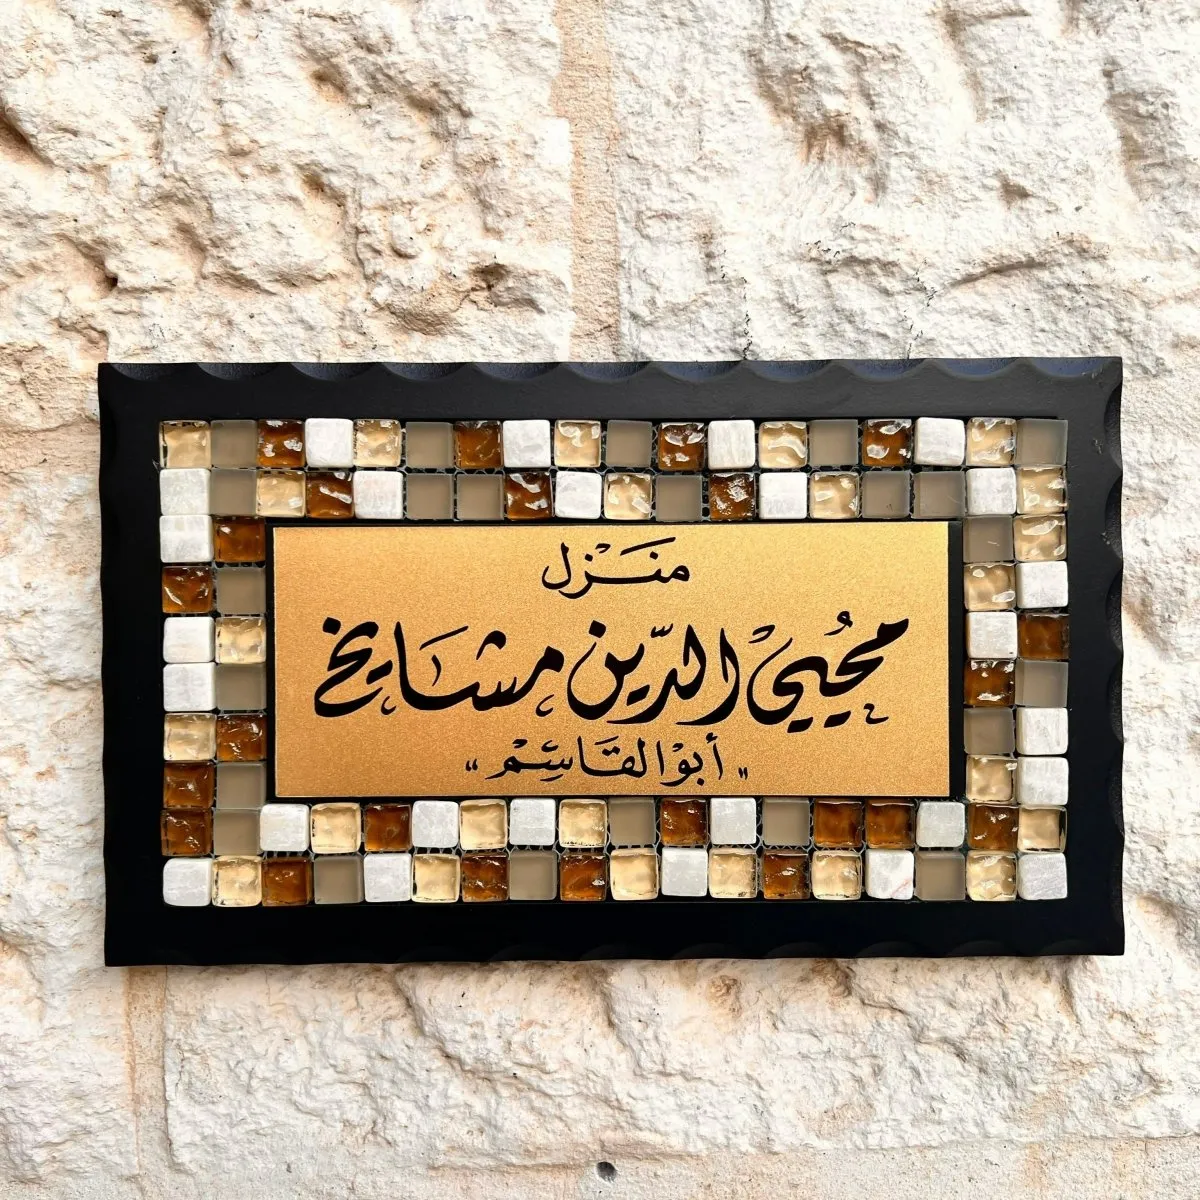 منزل
محُيي الدّين مشايخ
"أبوْ القَاسِّمْ"